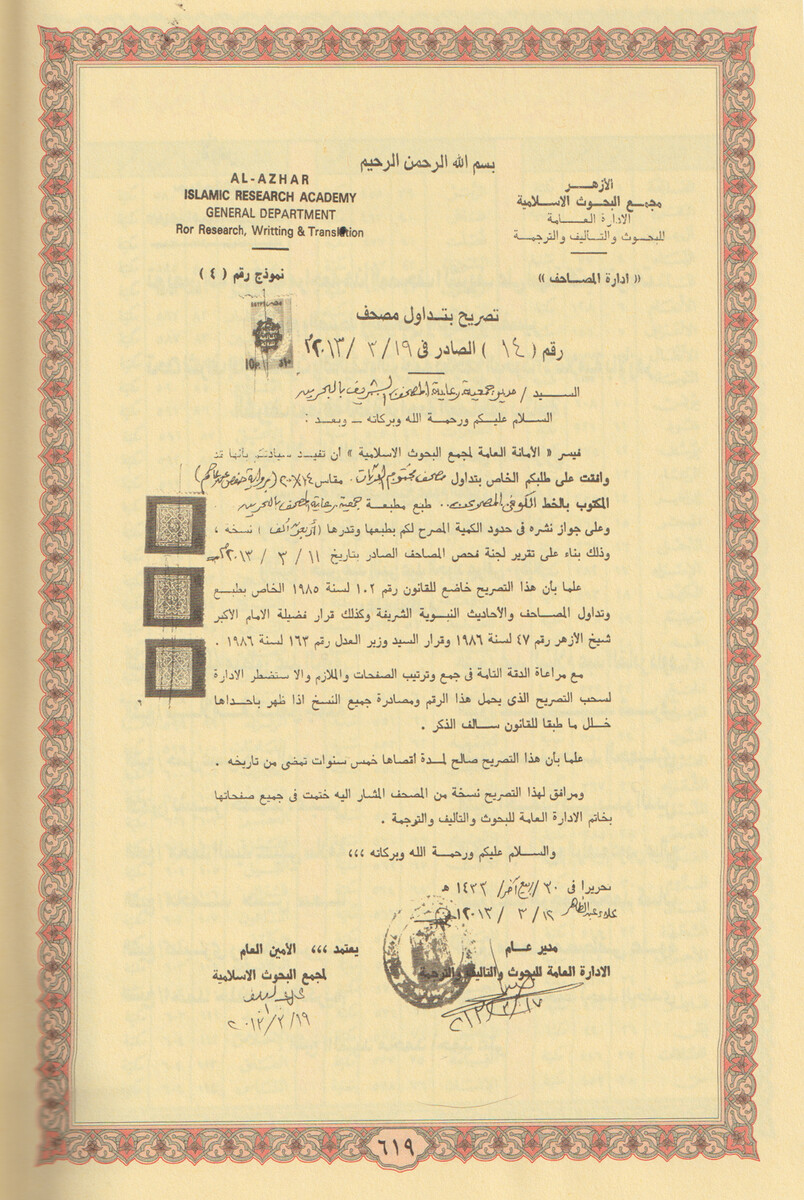 بسم الله الرحمن الرحيم
AL-AZHAR
ISLAMIC RESEARCH ACADEMY
GENERAL DEPARTMENT
Ror Research, Writting & Translation
الأزهـــر
مجمع البحوث الاسلامية
الادارة العـــامة
للبحوث والتـأليف والترجمـة
« ادارة المصـاحف »
نموذج رقم ( ٤ )
تصريح بتـداول مصحف
رقم ( ١٤ ) الصادر فى ١٩ / ٣ / ٢٠١٣م
الســـيد / مدير جمعية رعاية المصحف الشريف بالبحرين
السـلام عليـكم ورحمـة الله وبركاته ــ وبعـد :
فيسر « الأمانة العامة لمجمع البحوث الاسلامية » ان تفيـد سيادتكم بأنها قد
وافقت على طلبكم الخاص بتداول مصحف مقاس ١٤×٢٠ (برواية حفص عن عاصم)
المكتوب بالخط الكوفى طبع مطبعـة جمعية رعاية المصحف بالبحرين
وعلى جواز نشره فى حدود الكمية المصرح لكم بطبعها وقدرها ( أربعون ألف ) نسخه ،
وذلك بناء على تقرير لجنة فحص المصاحف الصادر بتاريخ ١١ / ٣ / ٢٠١٣م
علما بأن هذا التصريح خاضع للقانون رقم ١٠٢ لسنة ١٩٨٥ الخاص بطبـع
وتداول المصـاحف والأحاديث النبـوية الشريفة وكذلك قرار فضيلة الامام الاكبر
شيخ الأزهر رقم ٤٧ لسنة ١٩٨٦ وقرار السيد وزير العدل رقم ١٦٣ لسنة ١٩٨٦ .
مع مراعاة الدقة التامة فى جمع وترتيب الصفحات والملازم والا سنضطر الادارة
لسحب التصريح الذى يحمل هذا الرقم ومصادرة جميع النسخ اذا ظهر باحداها
خلـل ما طبقا للقانون سـالف الذكر .
علما بأن هذا التصريح صالح لمـدة أقصاها خمس سنوات تمضى من تاريخه .
ومرافق لهذا التصريح نسخة من المصحف المشار اليه ختمت فى جميع صفحاتها
بخاتم الادارة العامة للبحوث والتأليف والترجمة .
والسـلام عليكم ورحمـة الله وبركاته ،،،
تحريرا فى ٢٠ / ربيع آخر / ١٤٣٢ هـ
١٢ / ٣ / ٢٠١٣
مدير عــام
الادارة العامة للبحوث والتأليف والترجمة
١٧ / ٣ / ٢٠١٣
يعتمد ،،، الأمين العام
لمجمع البحوث الاسلامية
١٩ / ٣ / ٢٠١٣
٦١٩